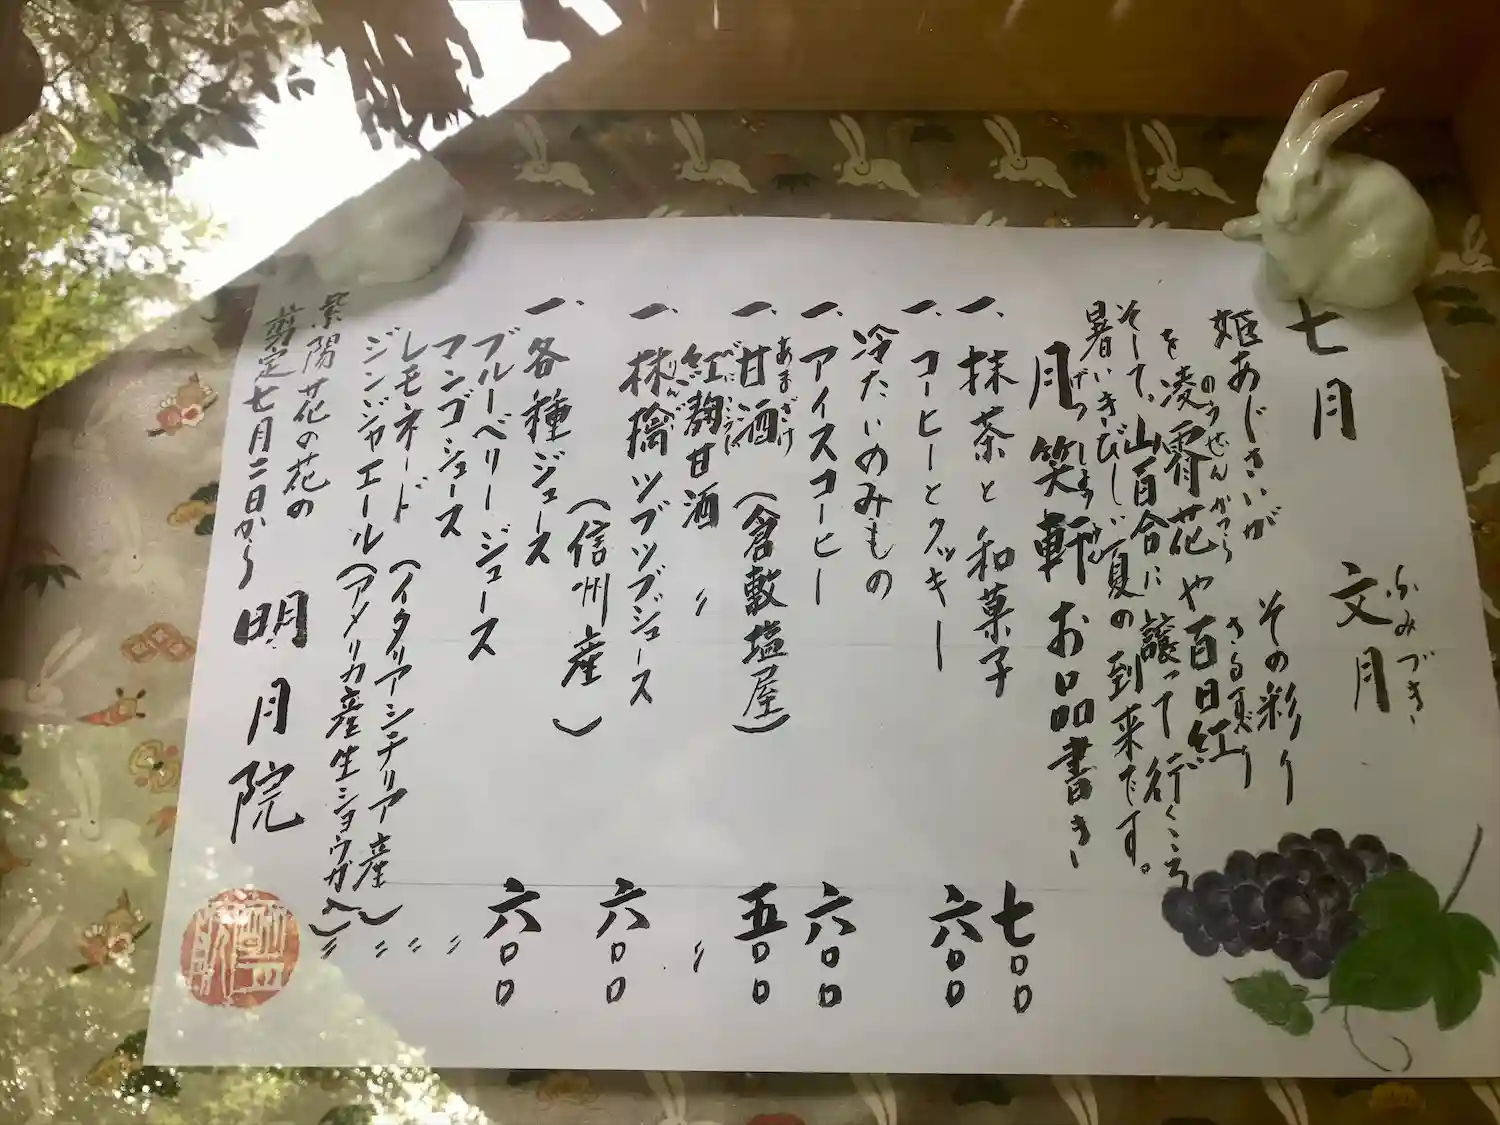 七月 文月
ふみづき
姫あじさいが その彩り
を凌霄花や百日紅
のうぜんかつら さるすべり
そして、山百合に譲って行くころ
暑いきびしい夏の到来です。
月笑軒お品書き
げっしょうけん
一、抹茶と和菓子 七〇〇
一、コーヒーとクッキー 六〇〇
冷たいのみもの
一、アイスコーヒー 六〇〇
一、甘酒 (倉敷塩屋) 五〇〇
あまざけ
紅麹甘酒 〃 〃
べにこうじ
一、林檎ツブツブジュース 六〇〇
りんご
(信州産)
一、各種ジュース
ブルーベリージュース 六〇〇
マンゴジュース 〃
レモネード (イタリアシチリア産) 〃 〃
ジンジャエール (アメリカ産生ショウガ入) 〃
紫陽花の花の
剪定七月二日から 明月院